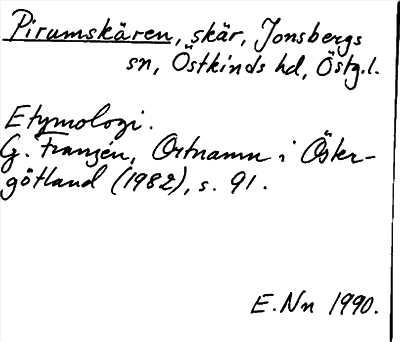 Pirumskären, skär, Jonsbergs
sn, Östkinds hd, Östg.l.
Etymologi.
G. Franzén, Ortnamn i Öster-
götland (1982), s. 91.
E.Nn 1990.